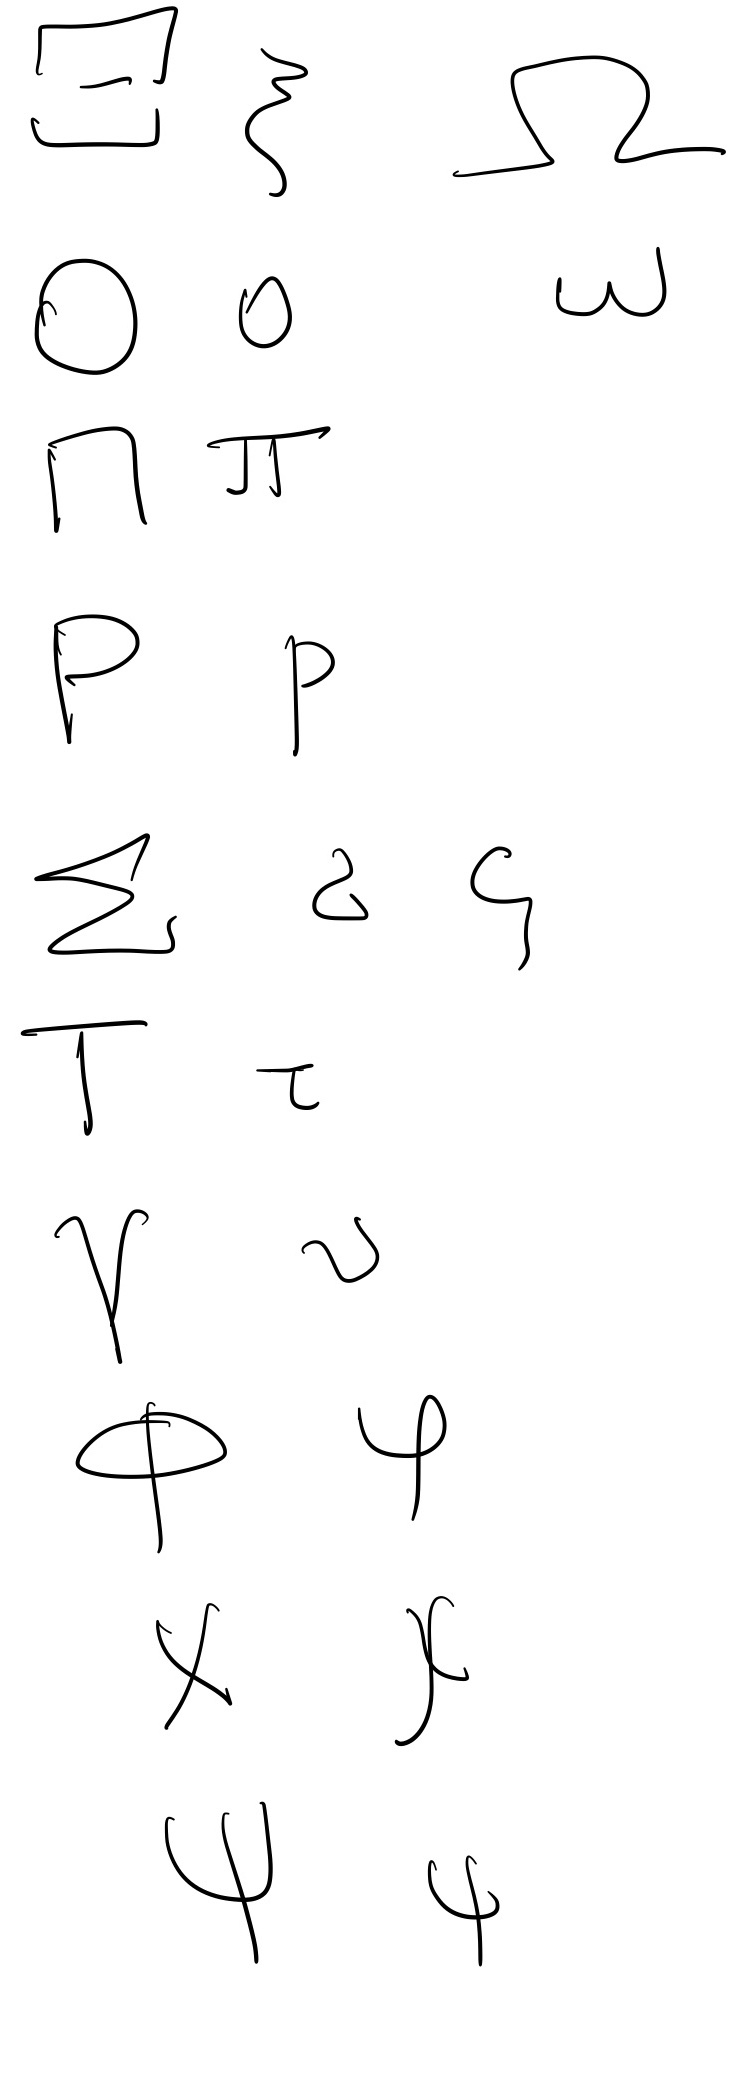 Ξ ξ Ω
Ο ο ω
Π π
Ρ ρ
Σ σ ς
Τ τ
Υ υ
Φ φ
Χ χ
Ψ ψ